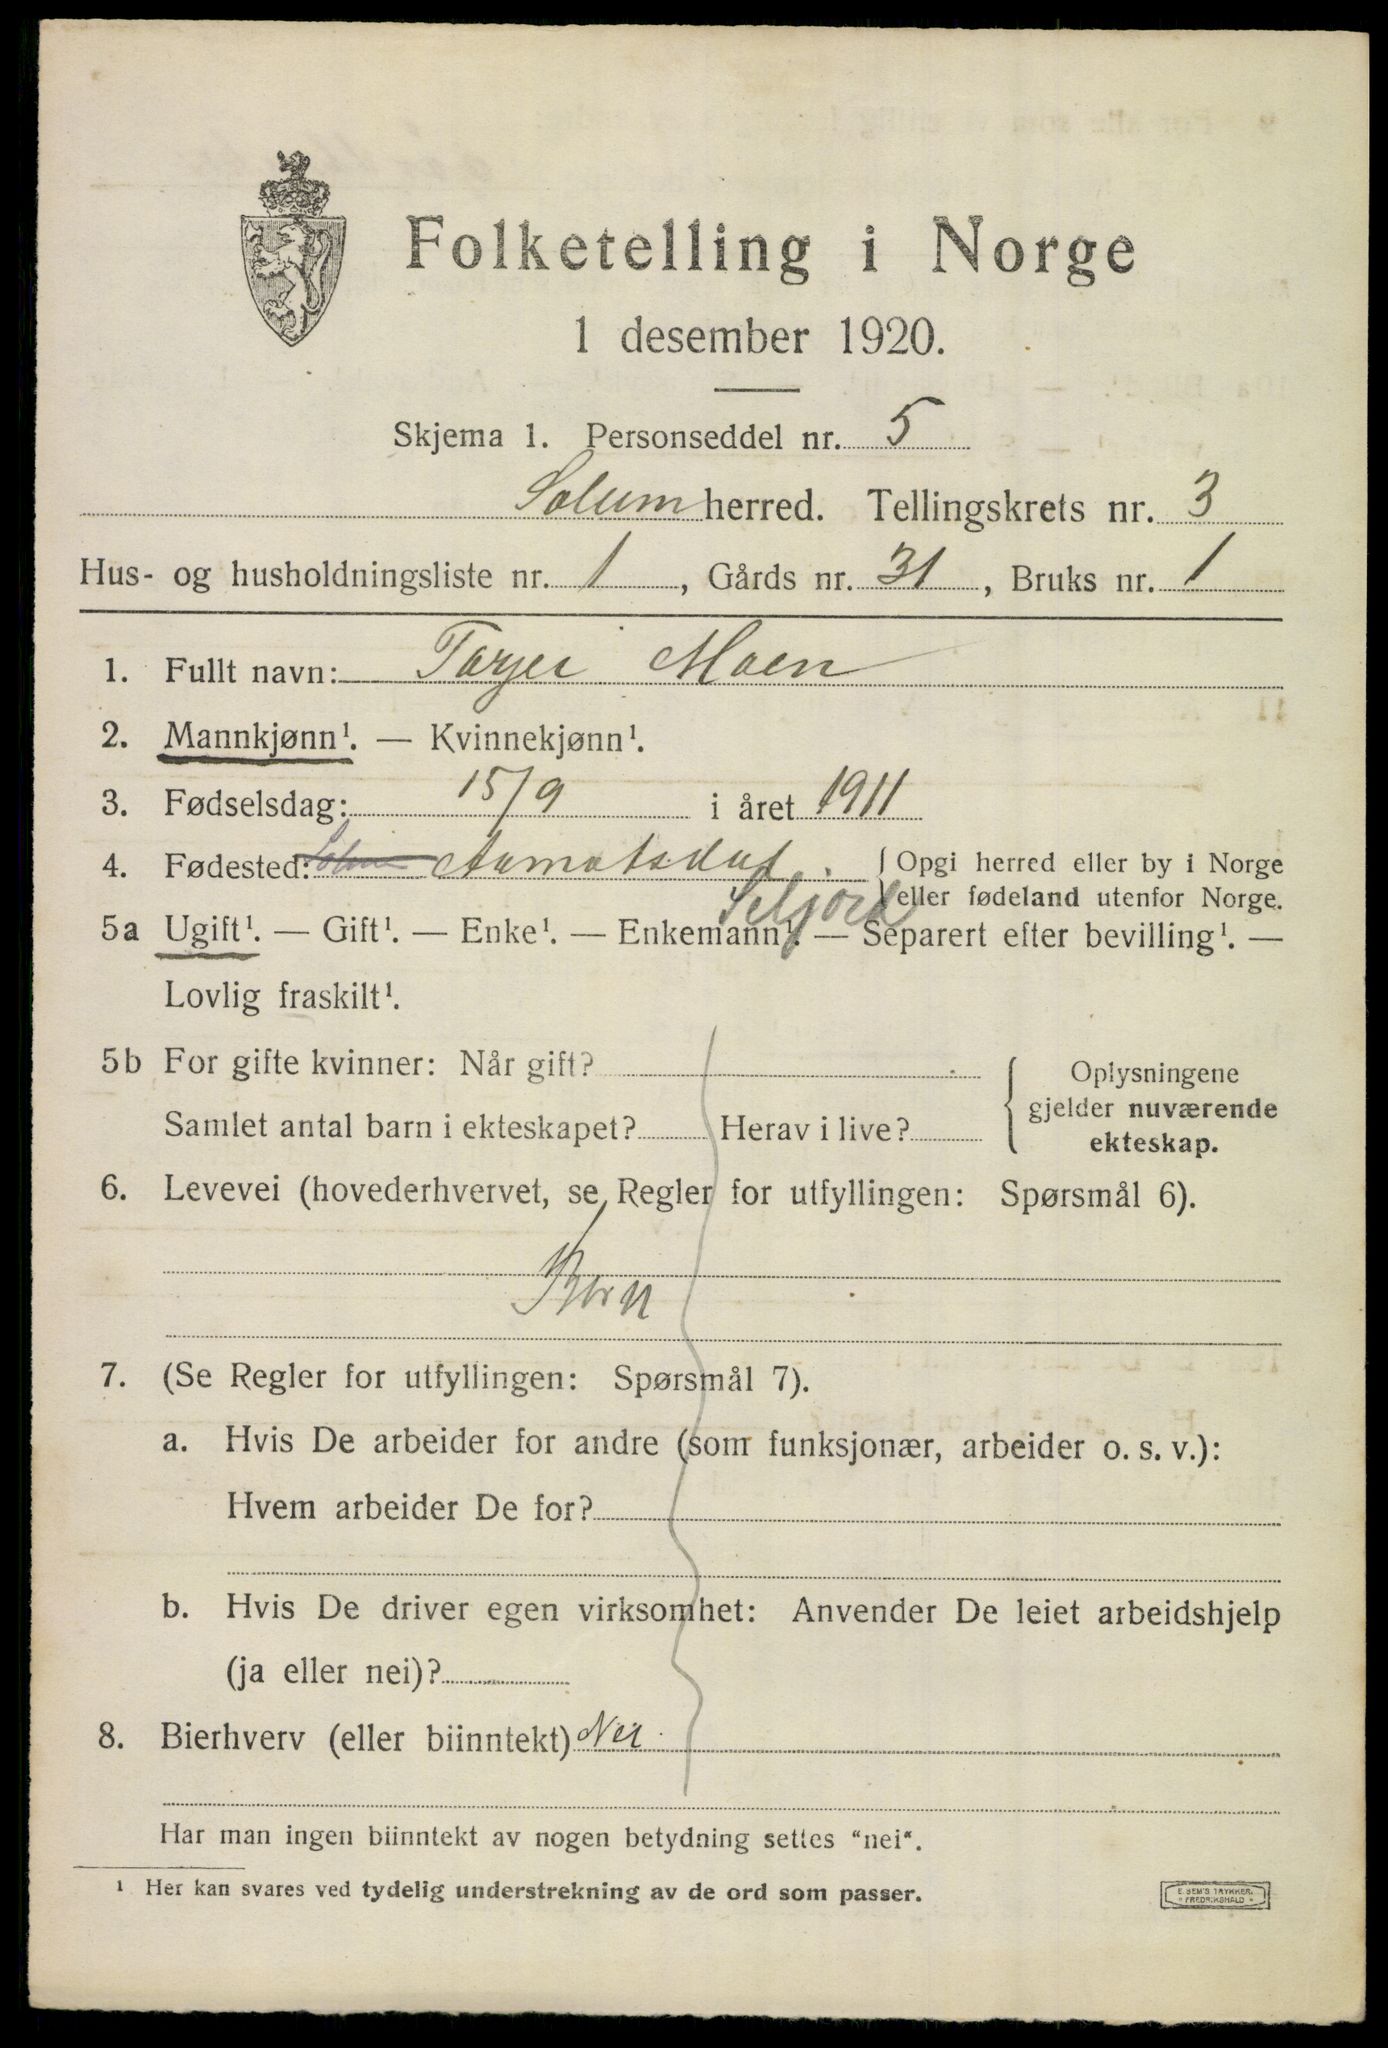 Folketelling i Norge
1 desember 1920.
Skjema 1. Personseddel nr. 5
Solum herred. Tellingskrets nr. 3
Hus- og husholdningsliste nr. 1, Gårds nr. 31, Bruks nr. 1
1. Fullt navn: Tarjei Moen
2. Mannkjønn¹. — Kvinnekjønn¹.
3. Fødselsdag: 15/9 i året 1911
4. Fødested: Solum Aamotsdal. Opgi herred eller by i Norge
eller fødeland utenfor Norge.
Seljord
5a Ugift¹. — Gift¹. — Enke¹. — Enkemann¹. — Separert efter bevilling¹. —
Lovlig fraskilt¹.
5b For gifte kvinner: Når gift?
Samlet antal barn i ekteskapet? Herav i live?
Oplysningene
gjelder nuværende
ekteskap.
6. Levevei (hovederhvervet, se Regler for utfyllingen: Spørsmål 6).
Barn
7. (Se Regler for utfyllingen: Spørsmål 7).
a. Hvis De arbeider for andre (som funksjonær, arbeider o. s. v.):
Hvem arbeider De for?
b. Hvis De driver egen virksomhet: Anvender De leiet arbeidshjelp
(ja eller nei)?
8. Bierhverv (eller biinntekt) Nei
Har man ingen biinntekt av nogen betydning settes "nei".
¹ Her kan svares ved tydelig understrekning av de ord som passer.
E. SEM'S TRYKKERI
FREDRIKSHALD